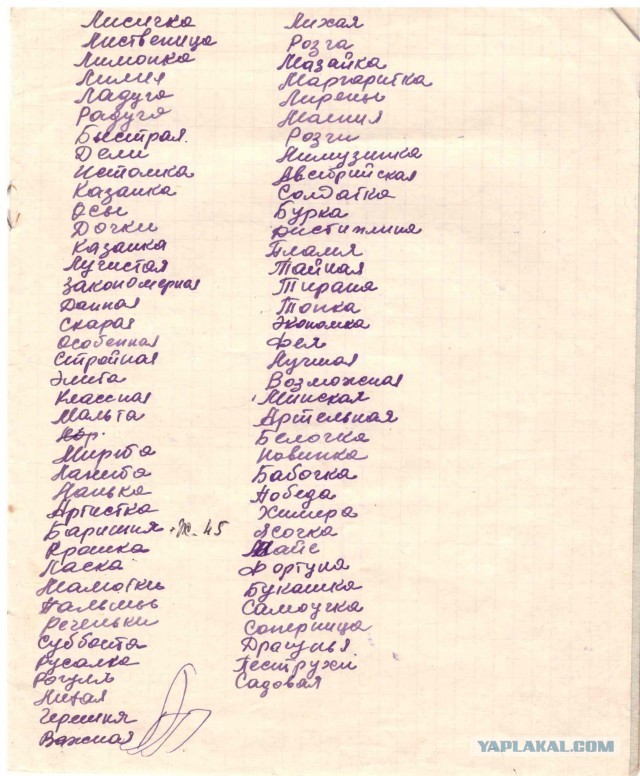 Лисичка
Лиственица
Лимонка
Лилия
Ладуга
Радуга
Быстрая.
Дели
Истомка
Казанка
Осы
Дочки
Казашка
Лучистая
Закономерная
Данная
Скарая
Особенная
Стройная
Элита
Классная
Мальта
Мирта
Нанита
Манька
Артистка
Барышня
Крошка
Ласка
Мамотки
Пальмы
Реченьки
Суббота
Русалка
Рогуль
Литая
Герешня
Важная
Лихая
Розга
Мазайка
Маргаритка
Магния
Розги
Лимузинка
Австрийская
Солдатка
Бурка
Пламя
Тайная
Тирана
Тонка
Экономка
Фея
Лучшая
Возможная
Минская
Артельная
Белочка
Новинка
Бабочка
Победа
Химера
Ясочка
Майс
Фортуна
Букашка
Самоучка
Соперница
Драгунья
Пеструхи
Садовая
YAPLAKAL.COM